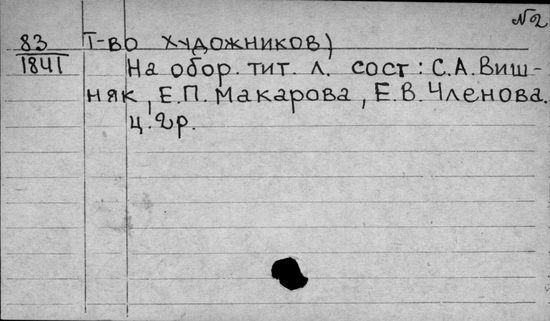 №2
83 т-во художников)
1841 На обор. тит. л. сост: С.А.Виш-
няк, Е.П. Макарова, Е.В.Членова.
ц. 2р.